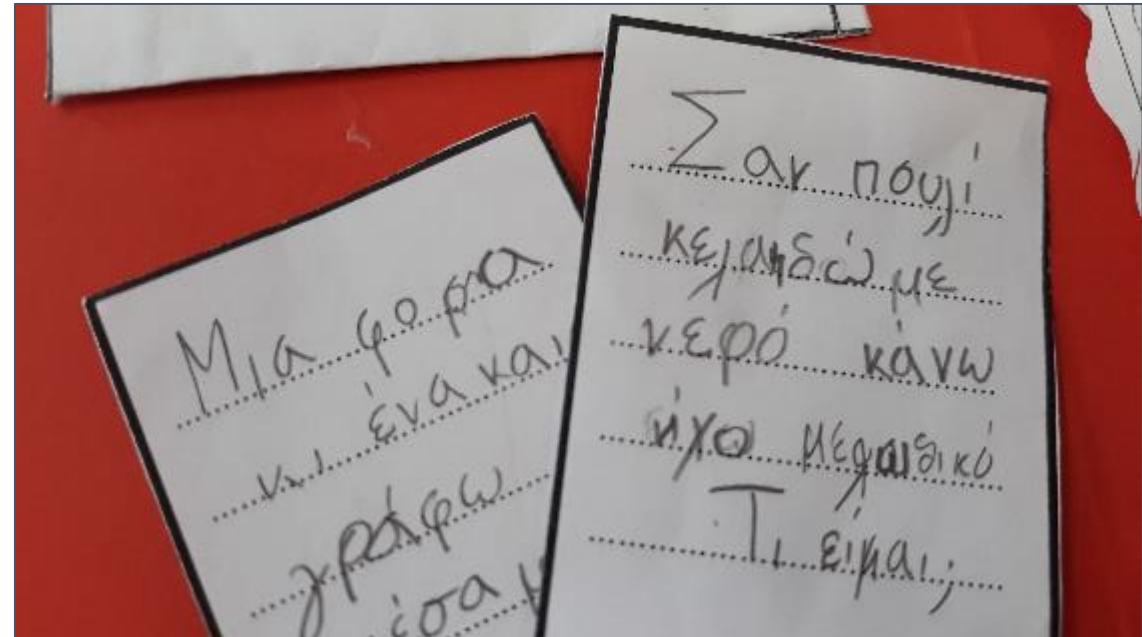 Μια φορα
κι ένα και
γράφω
έσα μ
Σαν πουλί
κελαηδώ με
νερό κάνω
ήχο μελωδικό
Τι είμαι;